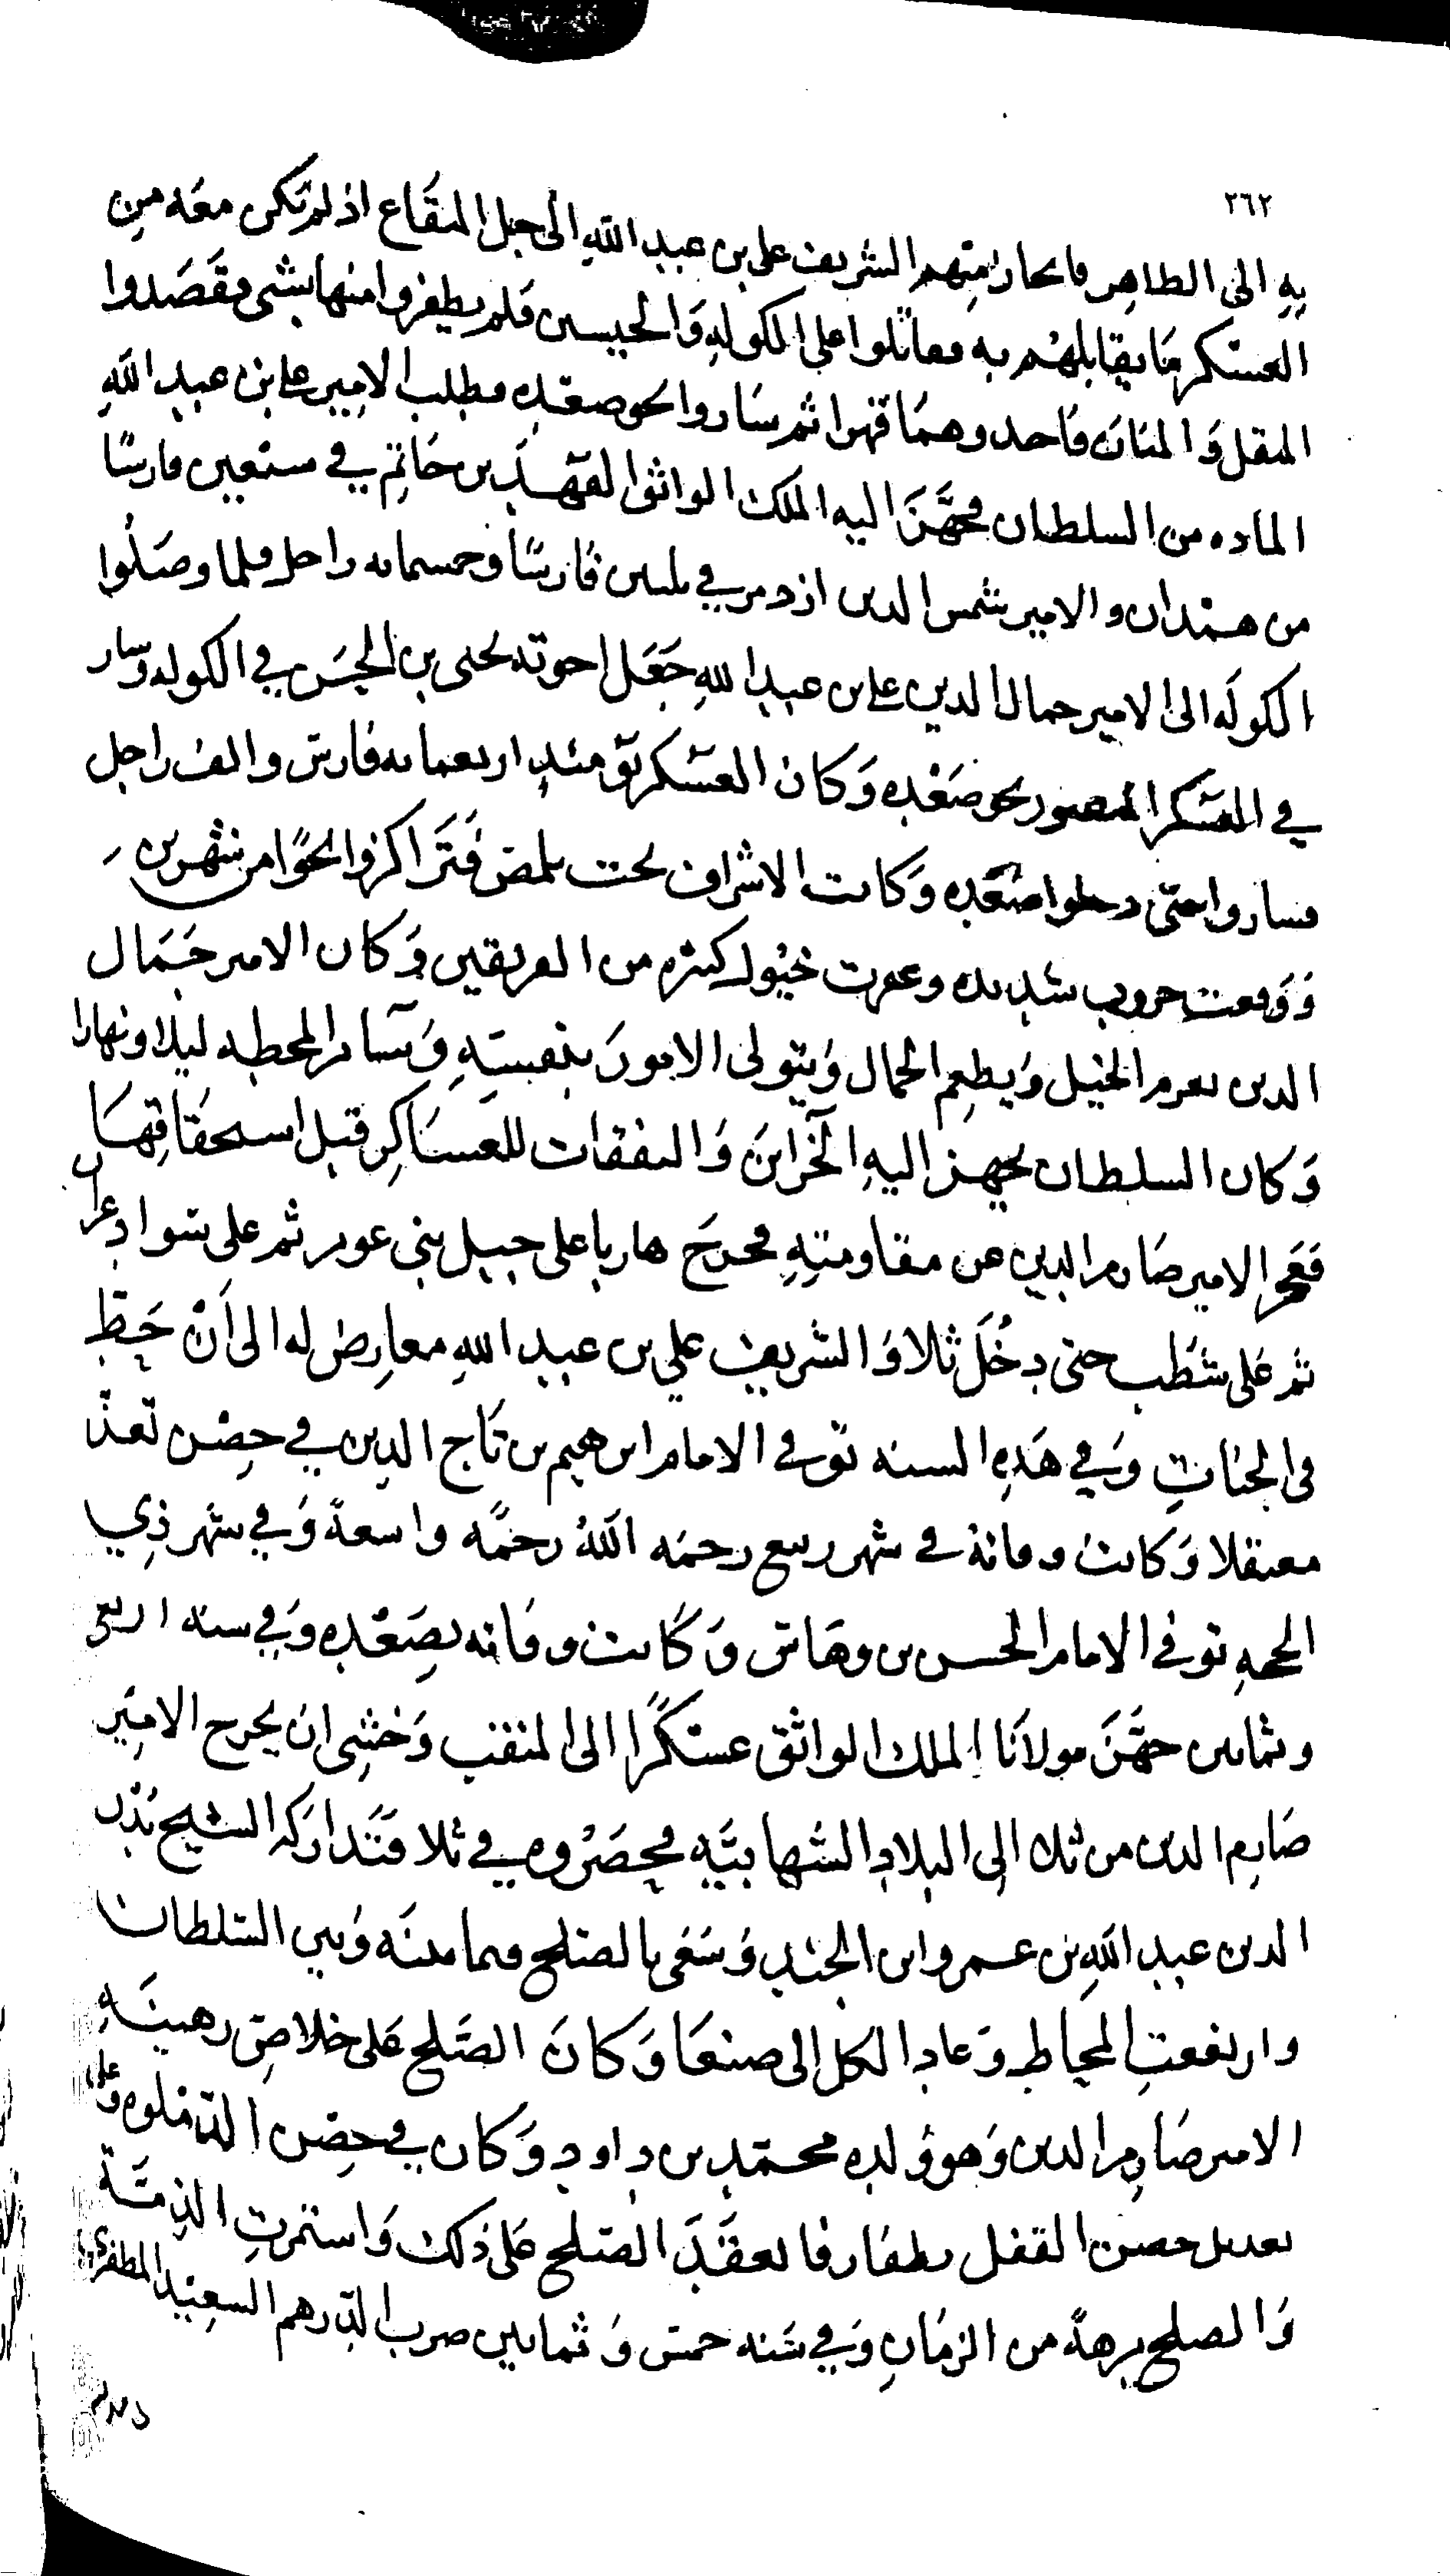 ٢٦٢
به الى الظاهر فانحاز منهم الشريف على بن عبد الله الى جبل المنقاع اذ لم تكن معه من
العسكر ما يقابلهم به فقاتلوا على الكوله والحبسين فلم يظفروا منها بشى فقصدوا
المقل والمنان فاخذوهما قهرا ثم ساروا نحو صعده فطلب الامير على بن عبد الله
الماده من السلطان فجهز اليه الملك الواثق الفهد بن حاتم في ستعين فارسا
من همدان والامير شمس الدين ازدمر في ثلثين فارسا وخمسمائه راجل فلما وصلوا
الكوله الى الامير جمال الدين على بن عبد الله جعل اخوته يحيى بن الحسن في الكوله وسار
في العسكر المنصور نحو صعده وكان العسكر يومئذ اربعمائه فارس والف راجل
فساروا حتى دخلوا صعده وكانت الاشراف تحت تلمص فتراكزوا نحوا من شهرين
ووقعت حروب شديده وعقرت خيول كثيره من الفريقين وكان الامير جمال
الدين يغرم الخيل ويطعم الحمال ويتولى الامور بنفسه وسامر المحطه ليلا ونهارا
وكان السلطان يجهز اليه الخزاين والنفقات للعساكر قبل استحقاقها
فعجز الامير صارم الدين عن مقاومته فخرج هاربا على جبل بني عوير ثم على سواد عذر
ثم على شظب حتى دخل ثلا والشريف علي بن عبد الله معارض له الى ان حط
فى الجنات وفي هذه السنه توفي الامام ابرهيم بن تاج الدين في حصن تعز
معتقلا وكانت وفاته في شهر ربيع رحمه الله رحمه واسعة وفي شهر ذي
الحجه توفي الامام الحسن بن وهاس وكانت وفاته بصعده وفي سنه اربع
وثمانين جهز مولانا الملك الواثق عسكرا الى المنقب وخشي ان يخرج الامير
صارم الدين من ثلا الى البلاد الشهابيه فحصروه في ثلا فتداركه الشيخ بدر
الدين عبد الله بن عمرو ابن الجنيد وسعى بالصلح فيما بينه وبين السلطان
وارتفعت المحاط وعاد الكل الى صنعا وكان الصلح على خلاص رهينه
الامير صارم الدين وهو ولده محمد بن داود وكان في حصن الدملوه وعلى
تعديل حصن القفل بظفار فانعقد الصلح على ذلك واستمرت الذمة
والصلح برهة من الزمان وفي سنه خمس وثمانين ضرب الدرهم السعيد المظفري